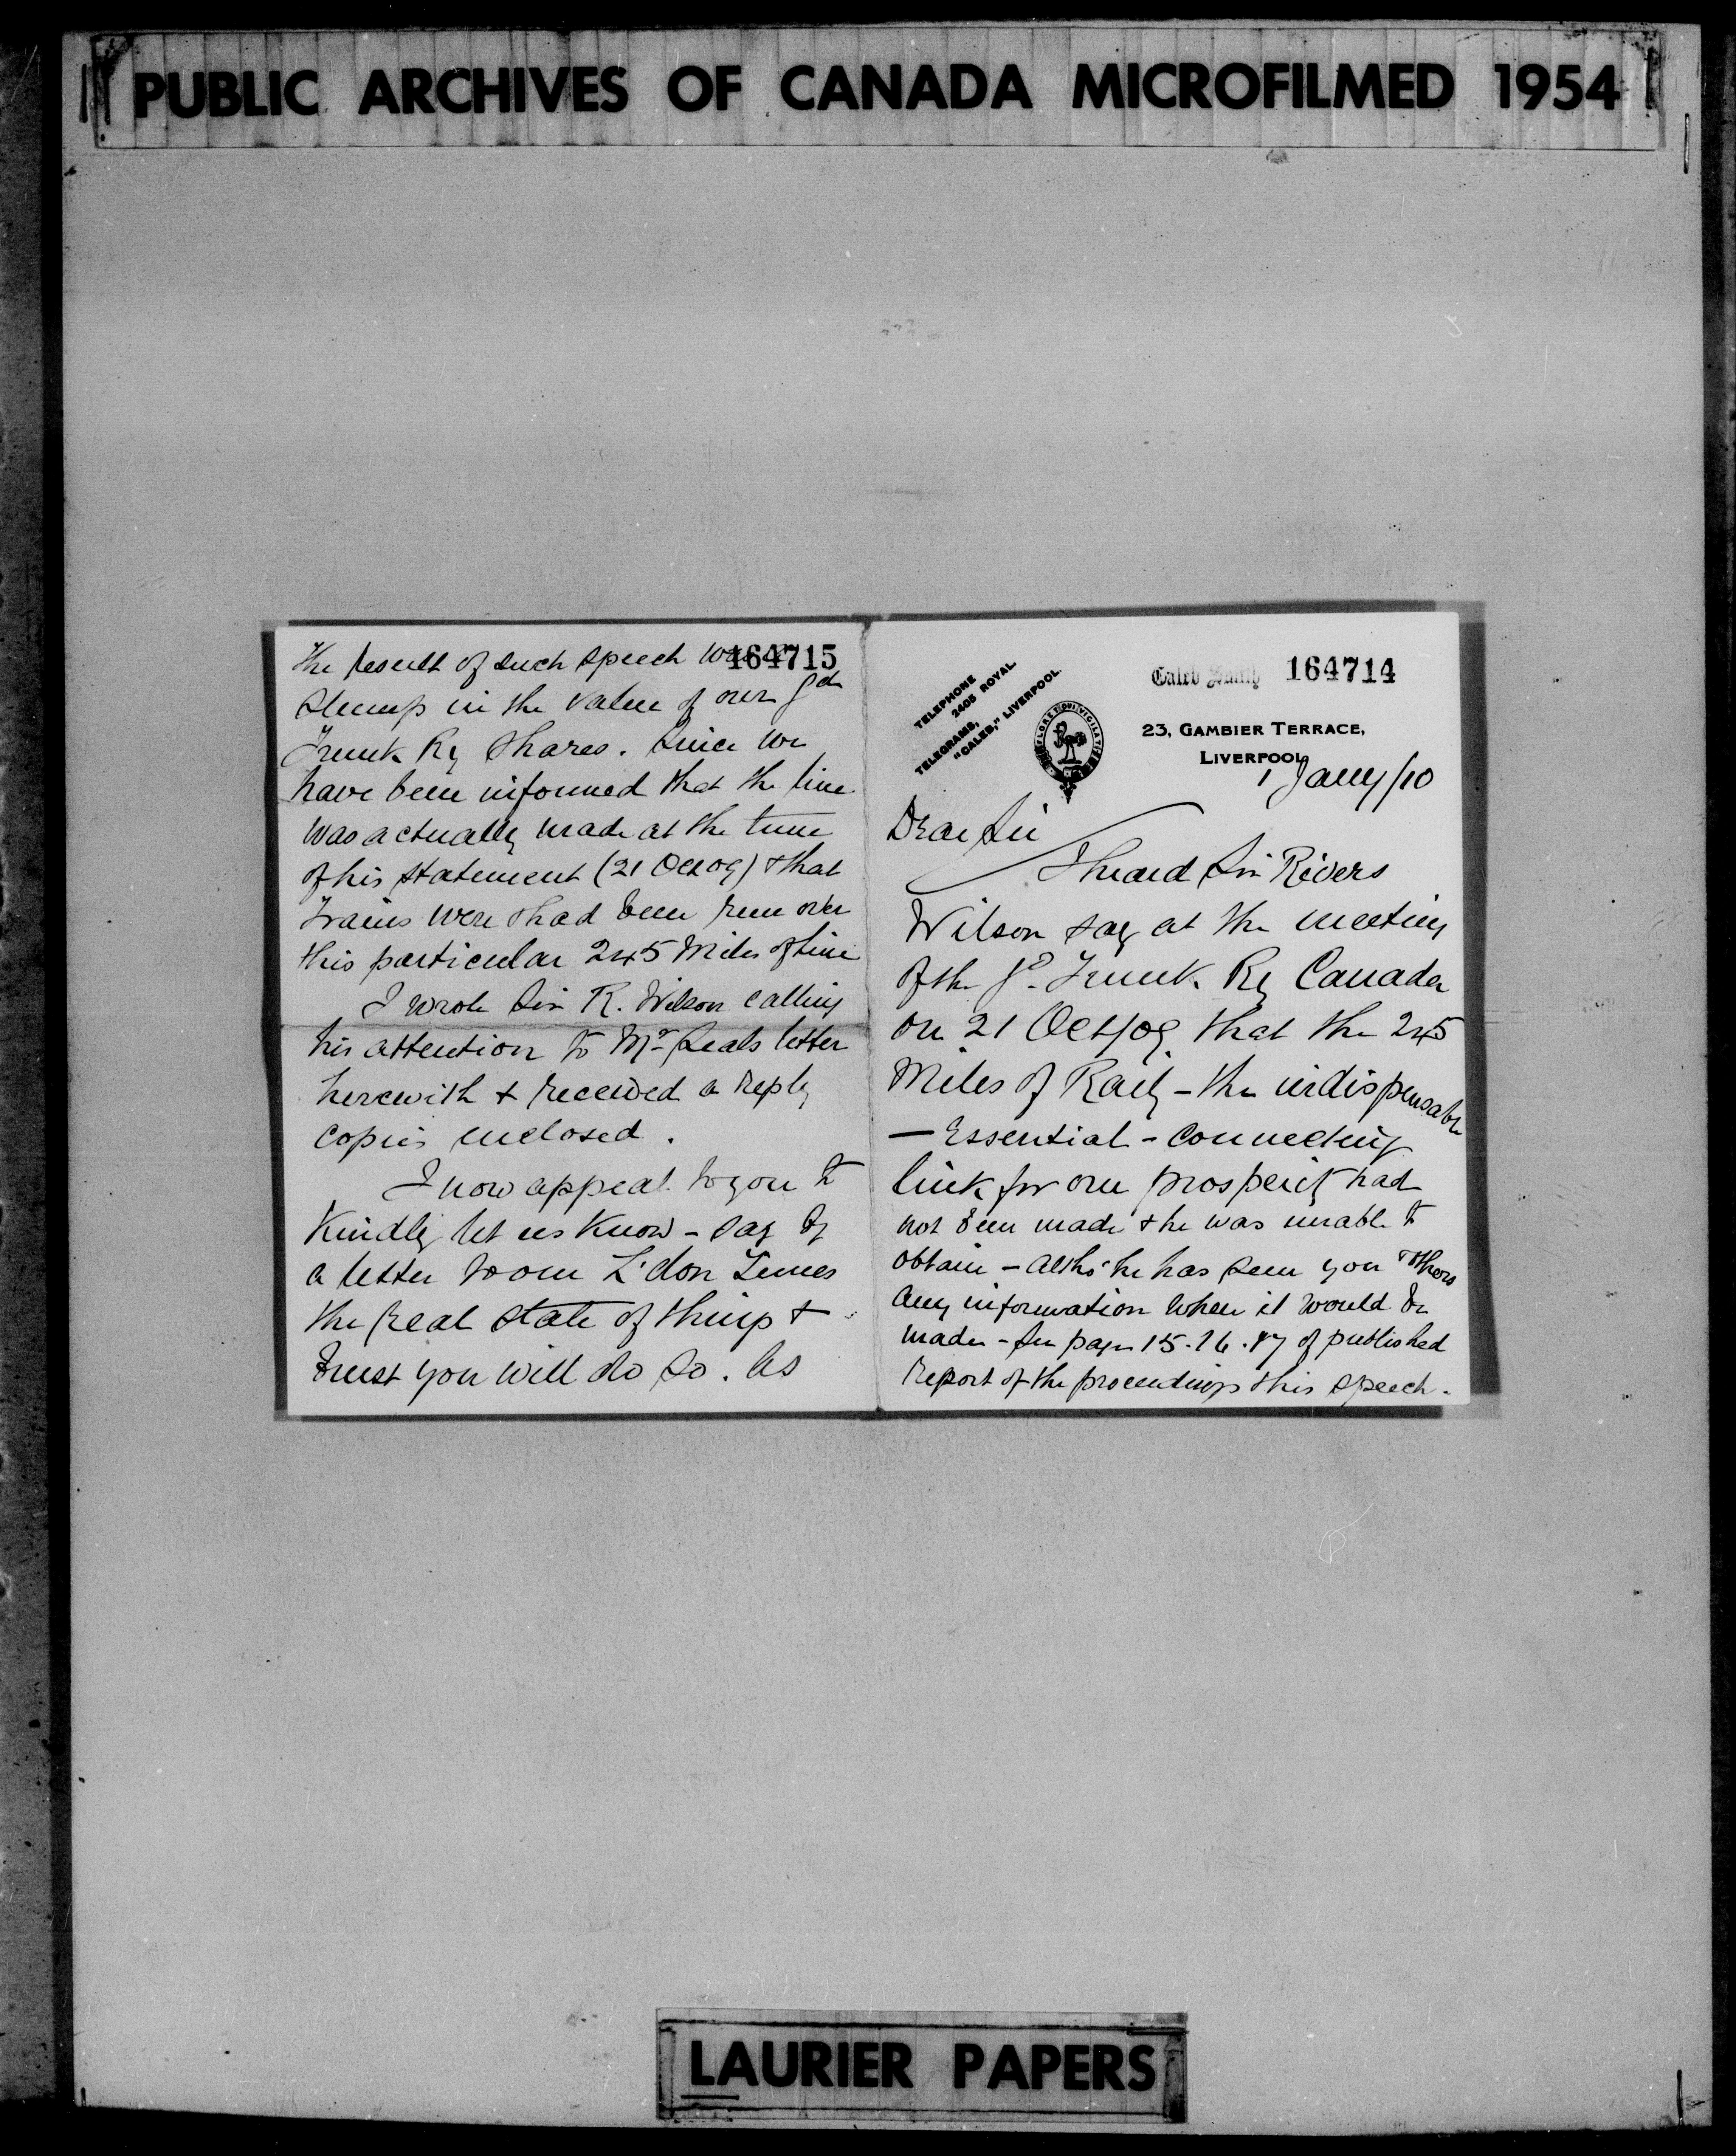 PUBLIC ARCHIVES OF CANADA MICROFILMED 1954
164714
Caleb Smith
TELEPHONE
2405 ROYAL
TELEGRAMS,
"CALEB," LIVERPOOL.
23, GAMBIER TERRACE,
LIVERPOOL
1 Jany/10
Dear Sir
I heard Sir Rivers
Wilson say at the meeting
of the Gd. Trunk Ry Canada
on 21 Oct/09 that the 245
Miles of Raily - the indispensable
- Essential - Connecting
link for our prosperity had
not been made & he was unable to
obtain - altho' he has seen you & others
any information when it would be
made - See pages 15.16.17 of published
report of the proceedings & his speech.
164715
The result of such speech was a
slump in the value of our Gd
Trunk Ry Shares. Since we
have been informed that the line
was actually made at the time
of his statement (21 Oct 09) & that
Trains were & had been run over
this particular 245 Miles of line
I wrote Sir R. Wilson calling
his attention to Mr Leals letter
herewith & received a reply
copies enclosed.
I now appeal to you to
Kindly let us Know - say by
a letter to our L'don Times
the real state of things &
trust you will do so. As
LAURIER PAPERS